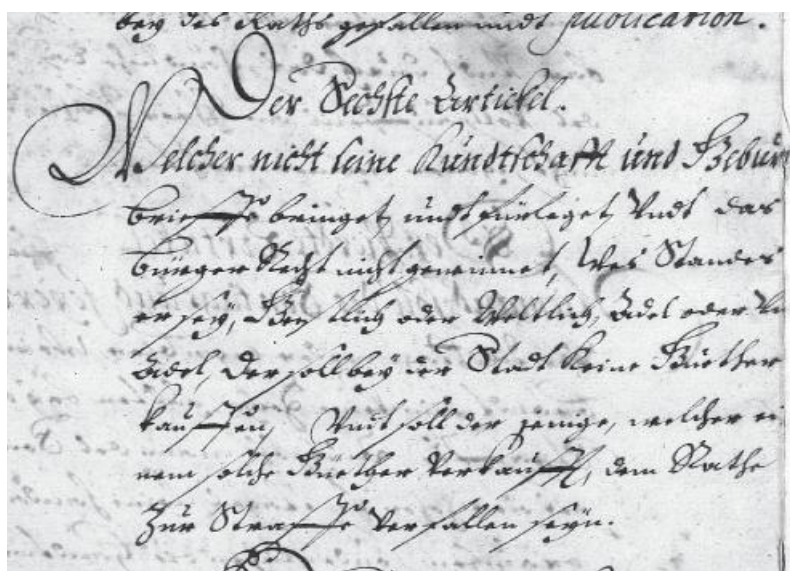 bey des Raths gefallen undt publication.
Der Sechste Artickel.
Welcher nicht seine Kundtschafft und Gebur
brieffe bringet, undt fürleget, Undt das
bürger Recht nicht gewinnet, Wes Standes
er sey, Geistlich oder Weltlich, Adel oder Un
Adel, Der soll bey der Stadt Keine Güether
kauffen, Undt soll der jenige, welcher ei
nem solche Güether Verkaufft, dem Rathe
Zur Straffe Verfallen seyn.